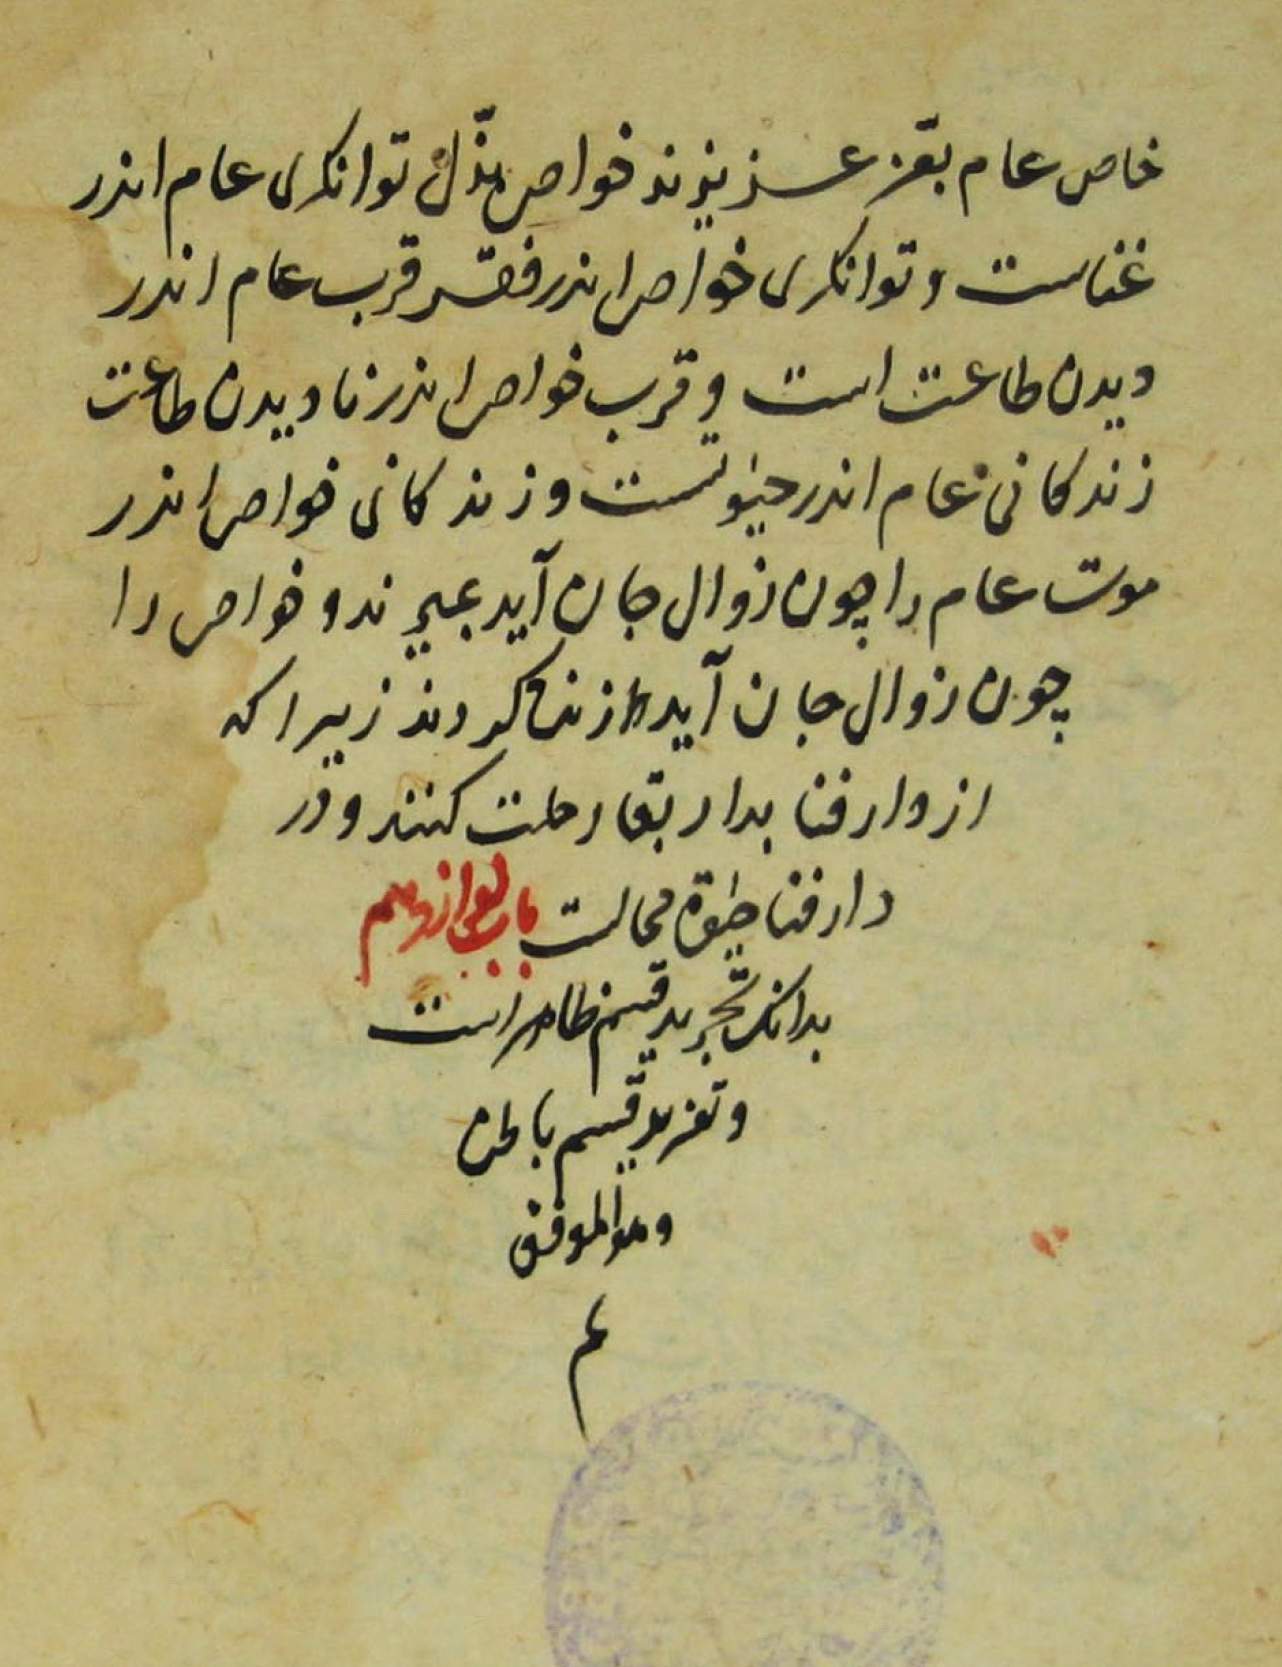 خاص عام بعّز عزیزند خواص بذّل توانکری عام اندر
غناست و توانکری خواص اندر فقر قرب عام اندر
دیدن طاعت است و قرب خواص اندر نادیدن طاعت
زندکانی عام اندر حیوتست و زندکانی خواص اندر
موت عام را چون زوال جان آید بمیرند و خواص را
چون زوال جان آید زنده کردند زیرا که
از دار فنا بدار بقا رحلت کنند و در
دار فنا حیوة محالست باب
بدانک تجرید قسم ظاهر است
و تفرید قسم باطن
و هو الموفق
م